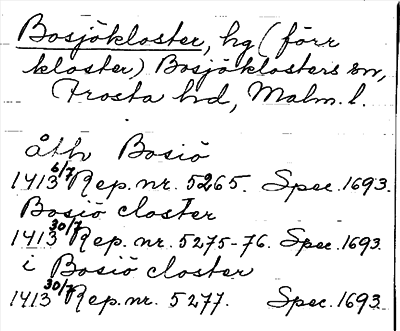 Bosjökloster, hg (förr
kloster) Bosjöklosters sn,
Frosta hd, Malm. l.
åth Bosiö
1413 6/7 Rep. nr. 5265. Spec. 1693.
Bosiö closter
1413 30/7 Rep. nr. 5275-76. Spec. 1693.
i Bosiö closter
1413 30/7 Rep. nr. 5277. Spec. 1693